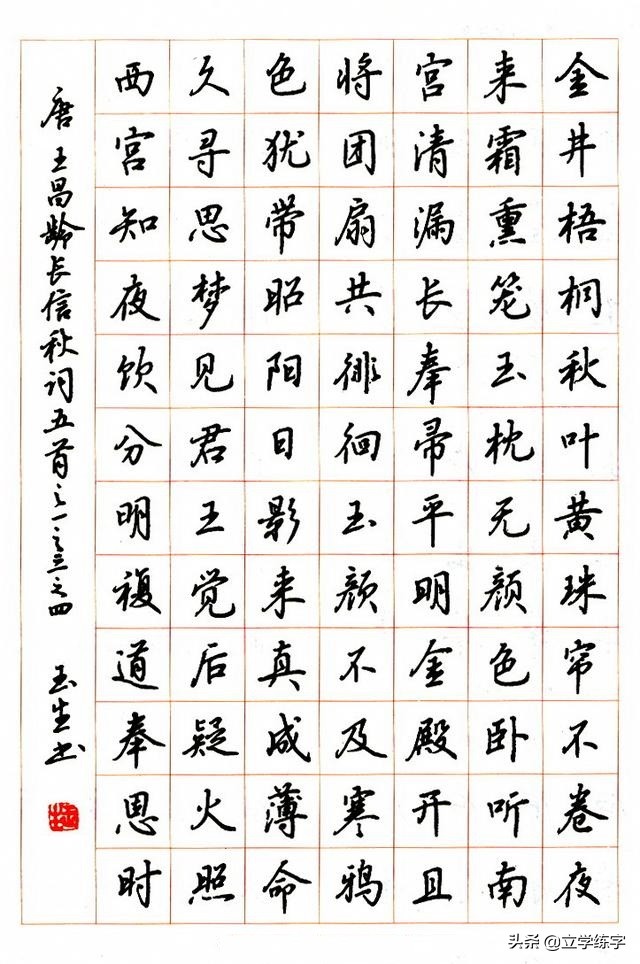 金井梧桐秋叶黄珠帘不卷夜
来霜熏笼玉枕无颜色卧听南
宫清漏长奉帚平明金殿开且
将团扇共徘徊玉颜不及寒鸦
色犹带昭阳日影来真成薄命
久寻思梦见君王觉后疑火照
西宫知夜饮分明複道奉恩时
唐王昌龄长信秋词五首之一之三之四 玉生书
头条 @立学练字